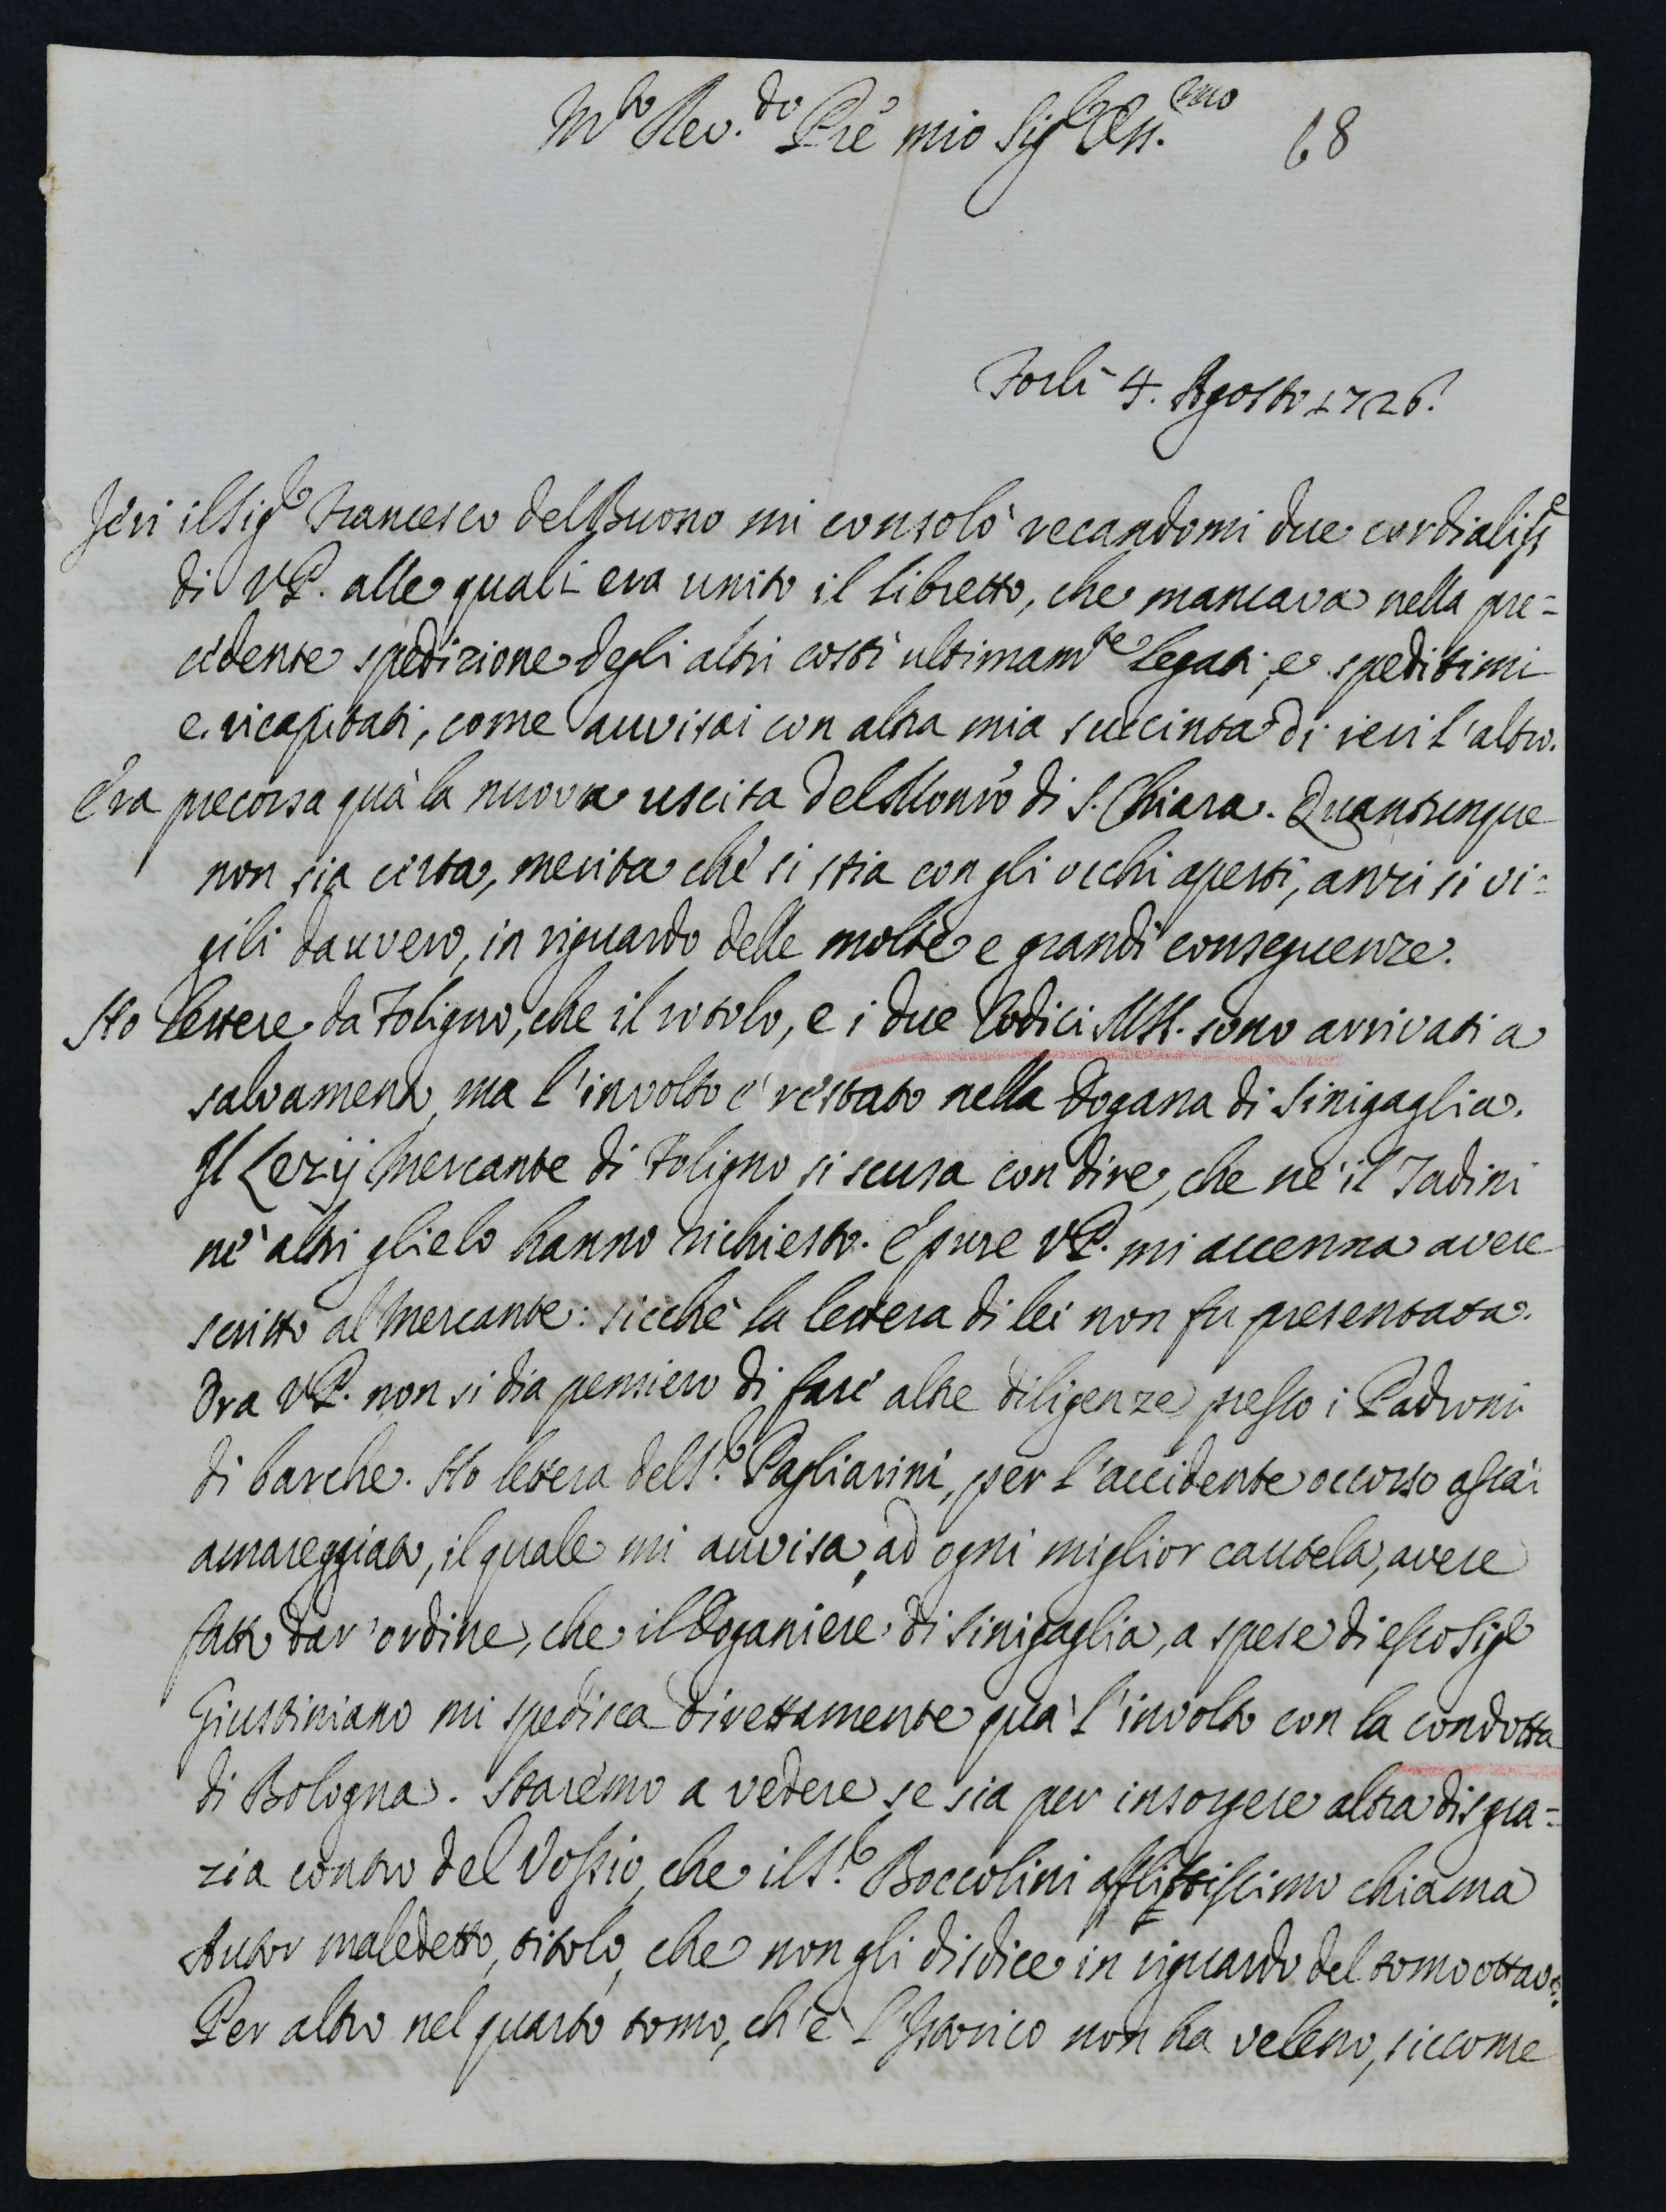 M.to Rev.do P̃re mio Sig.r Oss.mo 68
Forlì 4. Agosto 1726.
Jeri il Sig.r Francesco del Buono mi consolò recandomi due cordialiss.e
di V.P. alle quali era unito il libretto, che mancava nella pre=
cedente spedizione degli altri costì ultimam.te legati, e speditimi
e ricapitati, come avvisai con altra mia succinta di ieri l'altro.
Era precorsa quà la nuova uscita del Monr̃o di S. Chiara. Quantunque
non sia certa, merita che si stia con gli occhi aperti, anzi si vi=
gili davvero, in riguardo delle molte e grandi conseguenze.
Ho lettere da Foligno, che il rotolo, e i due Codici MSS. sono arrivati a
salvamento, ma l'involto è restato nella Dogana di Sinigaglia.
Il Lezij Mercante di Foligno si scusa con dire, che nè il Tadini
nè altri glielo hanno richiesto. E pure V.P. mi accenna avere
scritto al Mercante: sicchè la lettera di lei non fu presentata.
Ora V.P. non si dia pensiero di fare altre diligenze presso i Padroni
di barche. Ho lettera del S.r Pagliarini, per l'accidente occorso assai
amareggiato, il quale mi avvisa, ad ogni miglior cautela, avere
fatto dar'ordine, che il Doganiere di Sinigaglia, a spese di esso Sig.r
Giustiniano mi spedisca direttamente quà l'involto con la condotta
di Bologna. Staremo a vedere se sia per insorgere altra disgra=
zia contro del Vossio, che il S.r Boccolini afflittissimo chiama
Autor maledetto, titolo, che non gli disdice in riguardo del tomo ottavo.
Per altro nel quarto tomo, ch'è l'Istorico non ha veleno, siccome